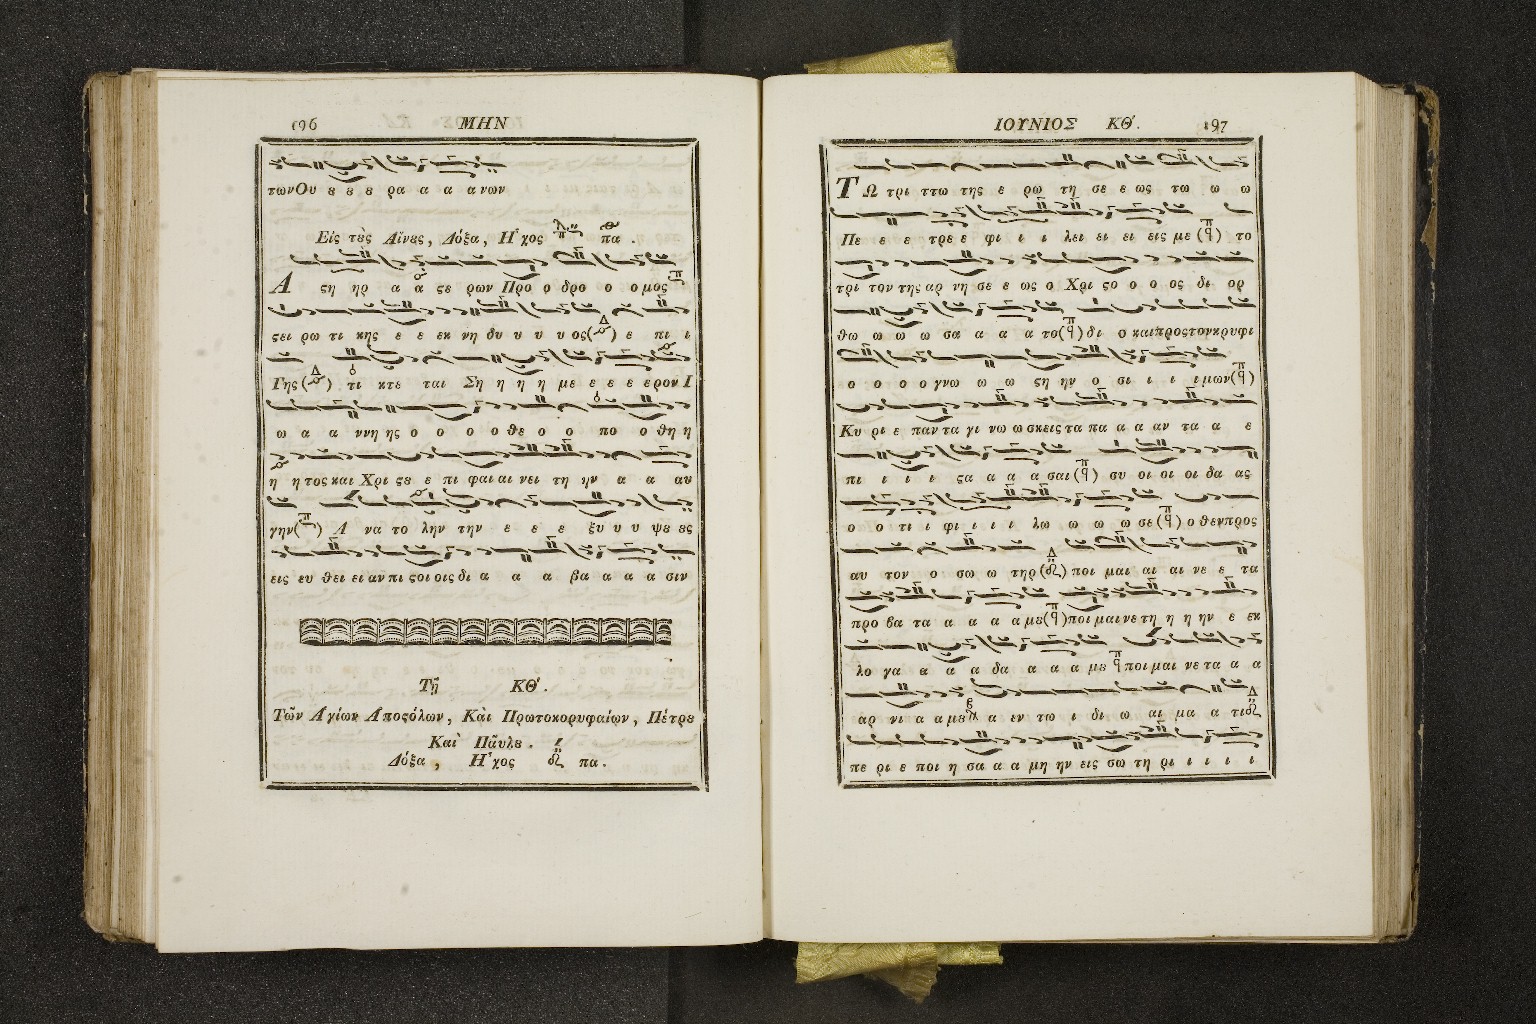 196 ΜΗΝ
των Ου ȣ ȣ ȣ ρα α α α νων
Εἰς τȣ̀ς Αἴνȣς, Δόξα, Ἦχος πα.
Α ϛη ηρ α α ϛε ρων Προ ο δρο ο ο μος
ϛει ρω τι κης ε ε εκ νη δυ υ υ υ ος( ) ε πι ι
Γης ( ) τι κτε ται Ση η η η με ε ε ε ε ρον Ι
ω α α ννη ης ο ο ο ο θε ο ο πο ο θη η
η η τος και Χρι ϛȣ ε πι φαι αι νει τη ην α α αυ
γην( ) Α να το λην την ε ε ε ξυ υ υ ψȣ ȣς
εις ευ θει ει αν πι ϛοι οις δι α α α βα α α α σιν
Τῇ ΚΘʹ.
Τῶν Ἁγίων Ἀποϛόλων, Κὰι Πρωτοκορυφαίων, Πέτρȣ
Καὶ Παῦλȣ.
Δόξα, Ἦχος πα.
ΙΟΥΝΙΟΣ ΚΘʹ. 197
ΤΩ τρι ττω της ε ρω τη σε ε ως τω ω ω
Πε ε ε τρε ε φι ι ι λει ει ει εις με ( ) το
τρι τον της αρ νη σε ε ως ο Χρι ϛο ο ο ος δι ορ
θω ω ω ω σα α α α το( ) δι ο και προς τον κρυφι
ο ο ο ο γνω ω ω ϛη ην ο σι ι ι ι μων( )
Κυ ρι ε παν τα γι νω ω σκεις τα πα α α αν τα α ε
πι ι ι ι ϛα α α α σαι ( ) συ οι οι οι δα ας
ο ο τι ι φι ι ι ι λω ω ω ω σε ( ) ο θεν προς
αυ τον ο σω ω τηρ ( ) ποι μαι αι αι νε ε τα
προ βα τα α α α α μȣ( )ποι μαι νε τη η η ην ε εκ
λο γα α α α δα α α α μȣ ποι μαι νε τα α α
αρ νι α α μȣ α εν τω ι δι ω αι μα α τι
πε ρι ε ποι η σα α α μη ην εις σω τη ρι ι ι ι ι